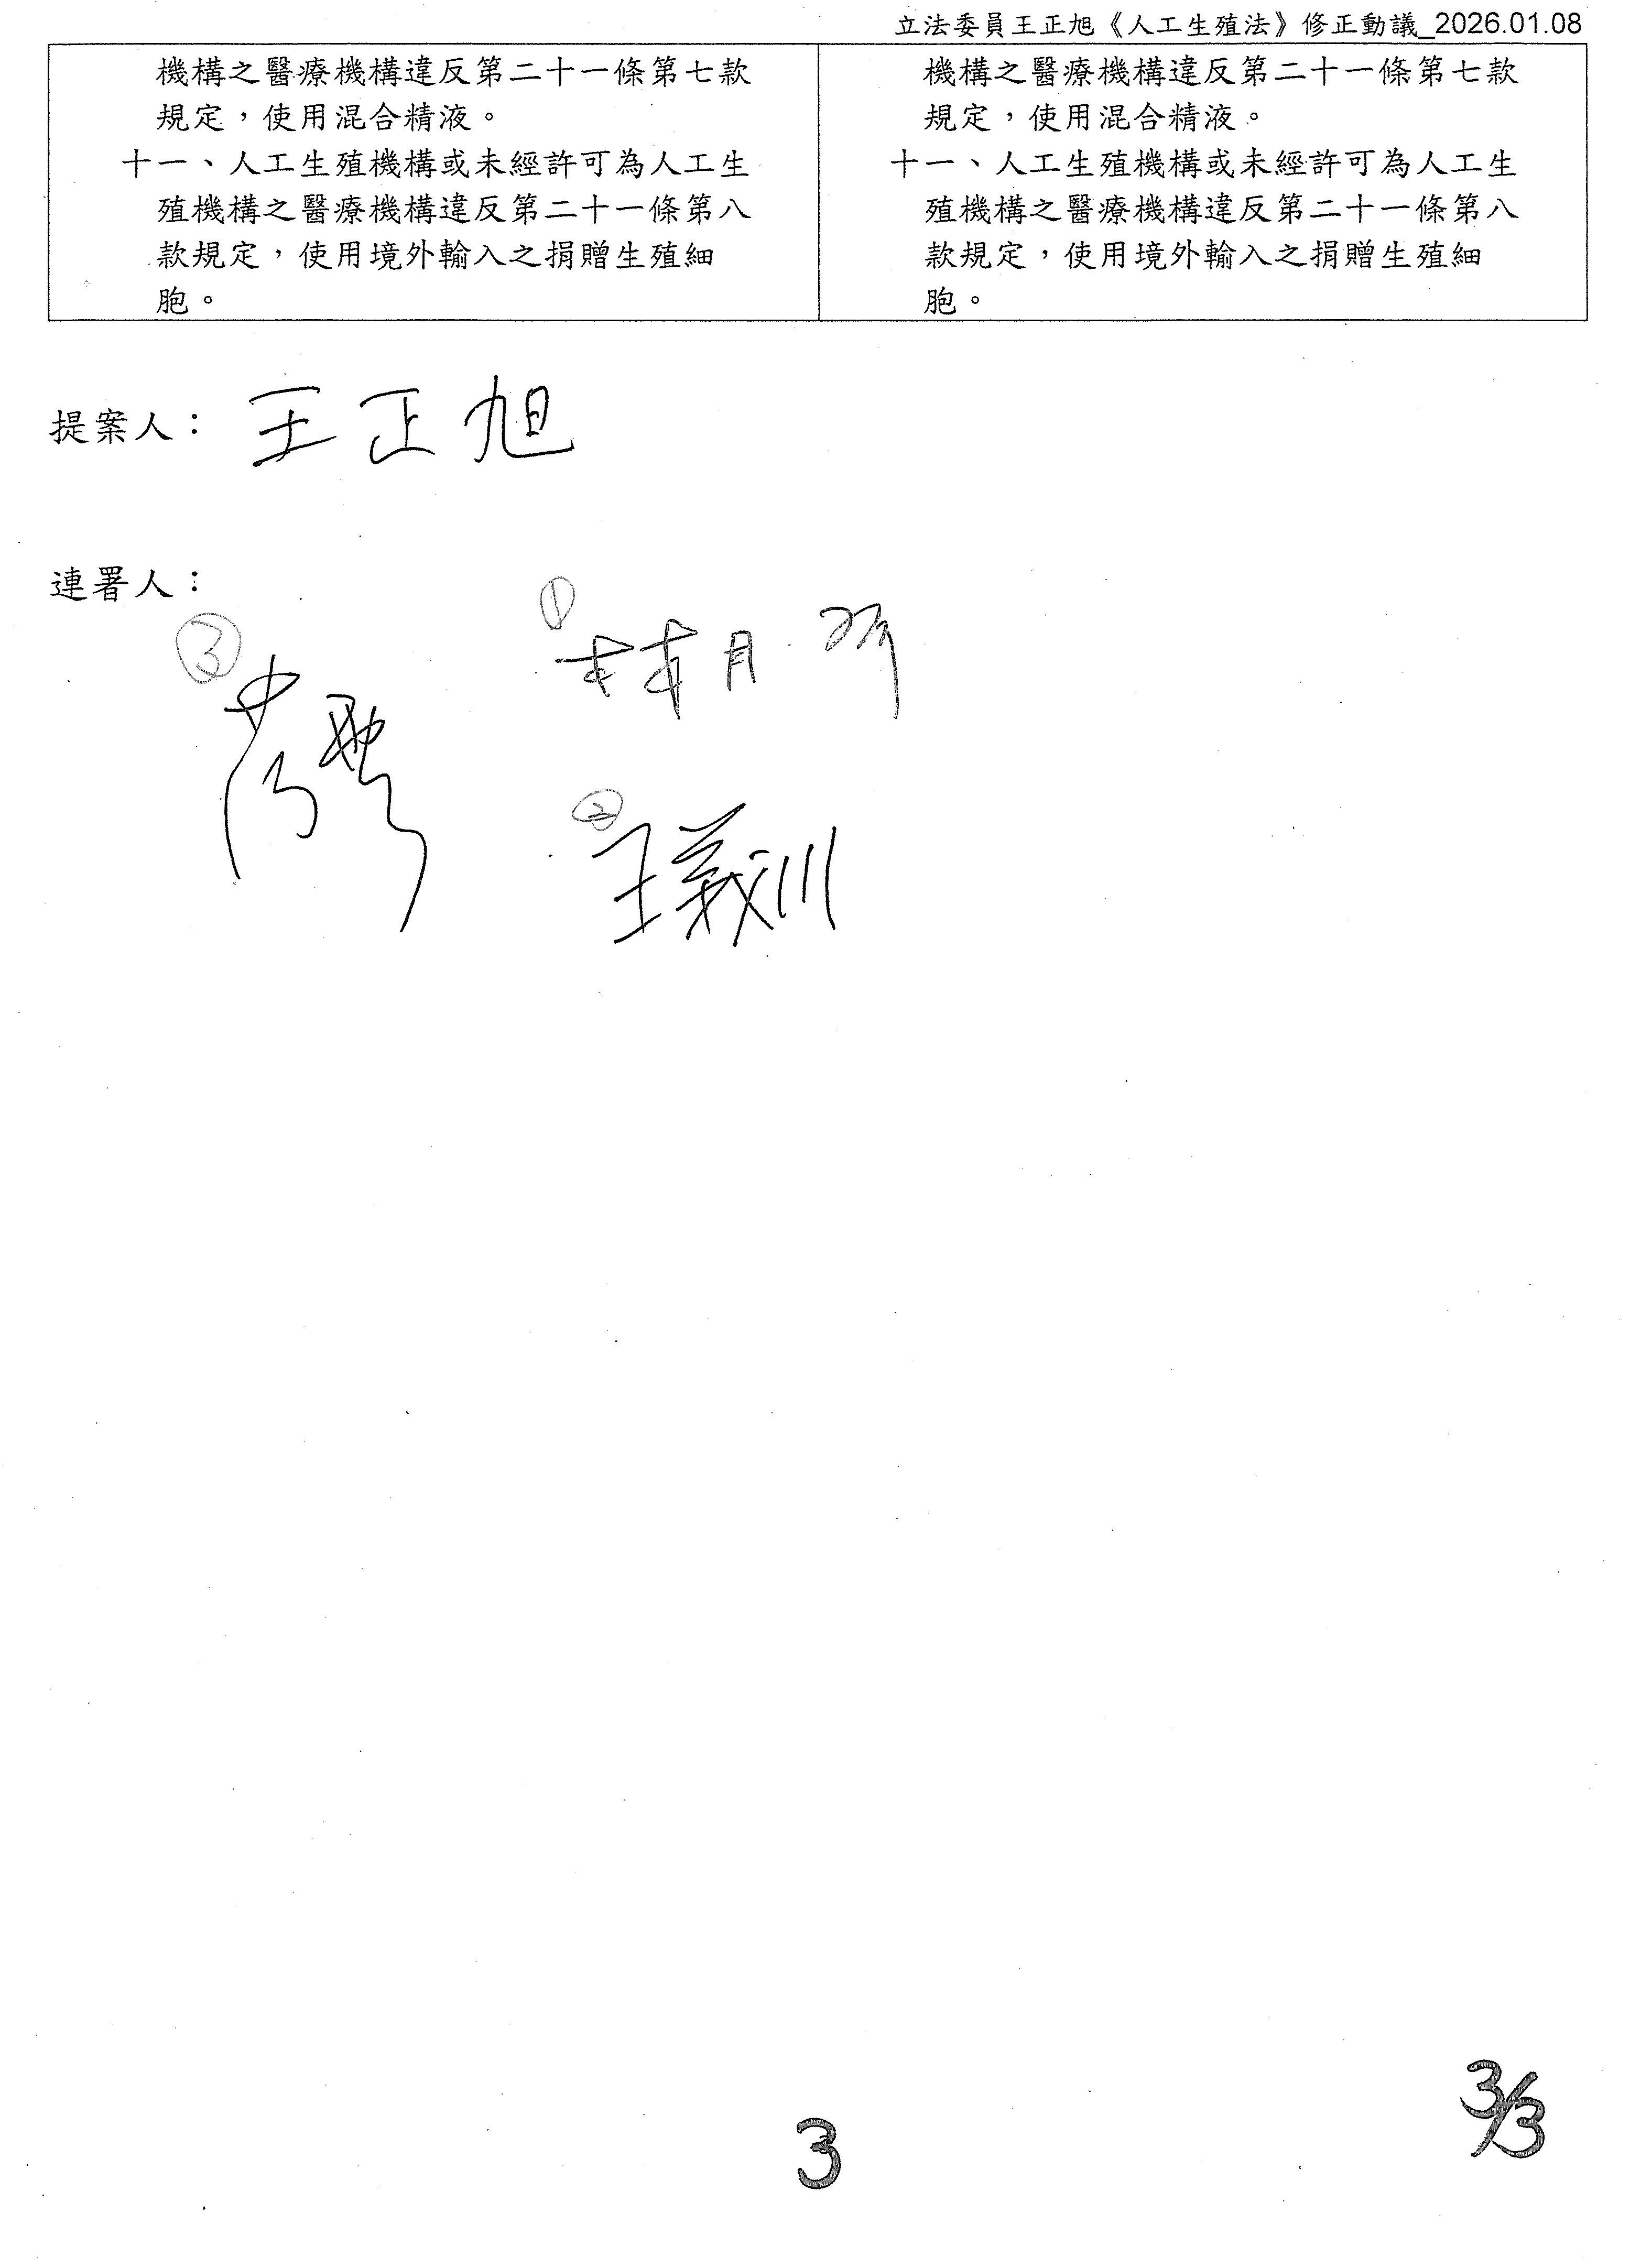 立法委員王正旭《人工生殖法》修正動議_2026.01.08
機構之醫療機構違反第二十一條第七款
規定，使用混合精液。
十一、人工生殖機構或未經許可為人工生
殖機構之醫療機構違反第二十一條第八
款規定，使用境外輸入之捐贈生殖細
胞。
機構之醫療機構違反第二十一條第七款
規定，使用混合精液。
十一、人工生殖機構或未經許可為人工生
殖機構之醫療機構違反第二十一條第八
款規定，使用境外輸入之捐贈生殖細
胞。
提案人：王正旭
連署人：
①林月琴
②王義川
③
3
3/3